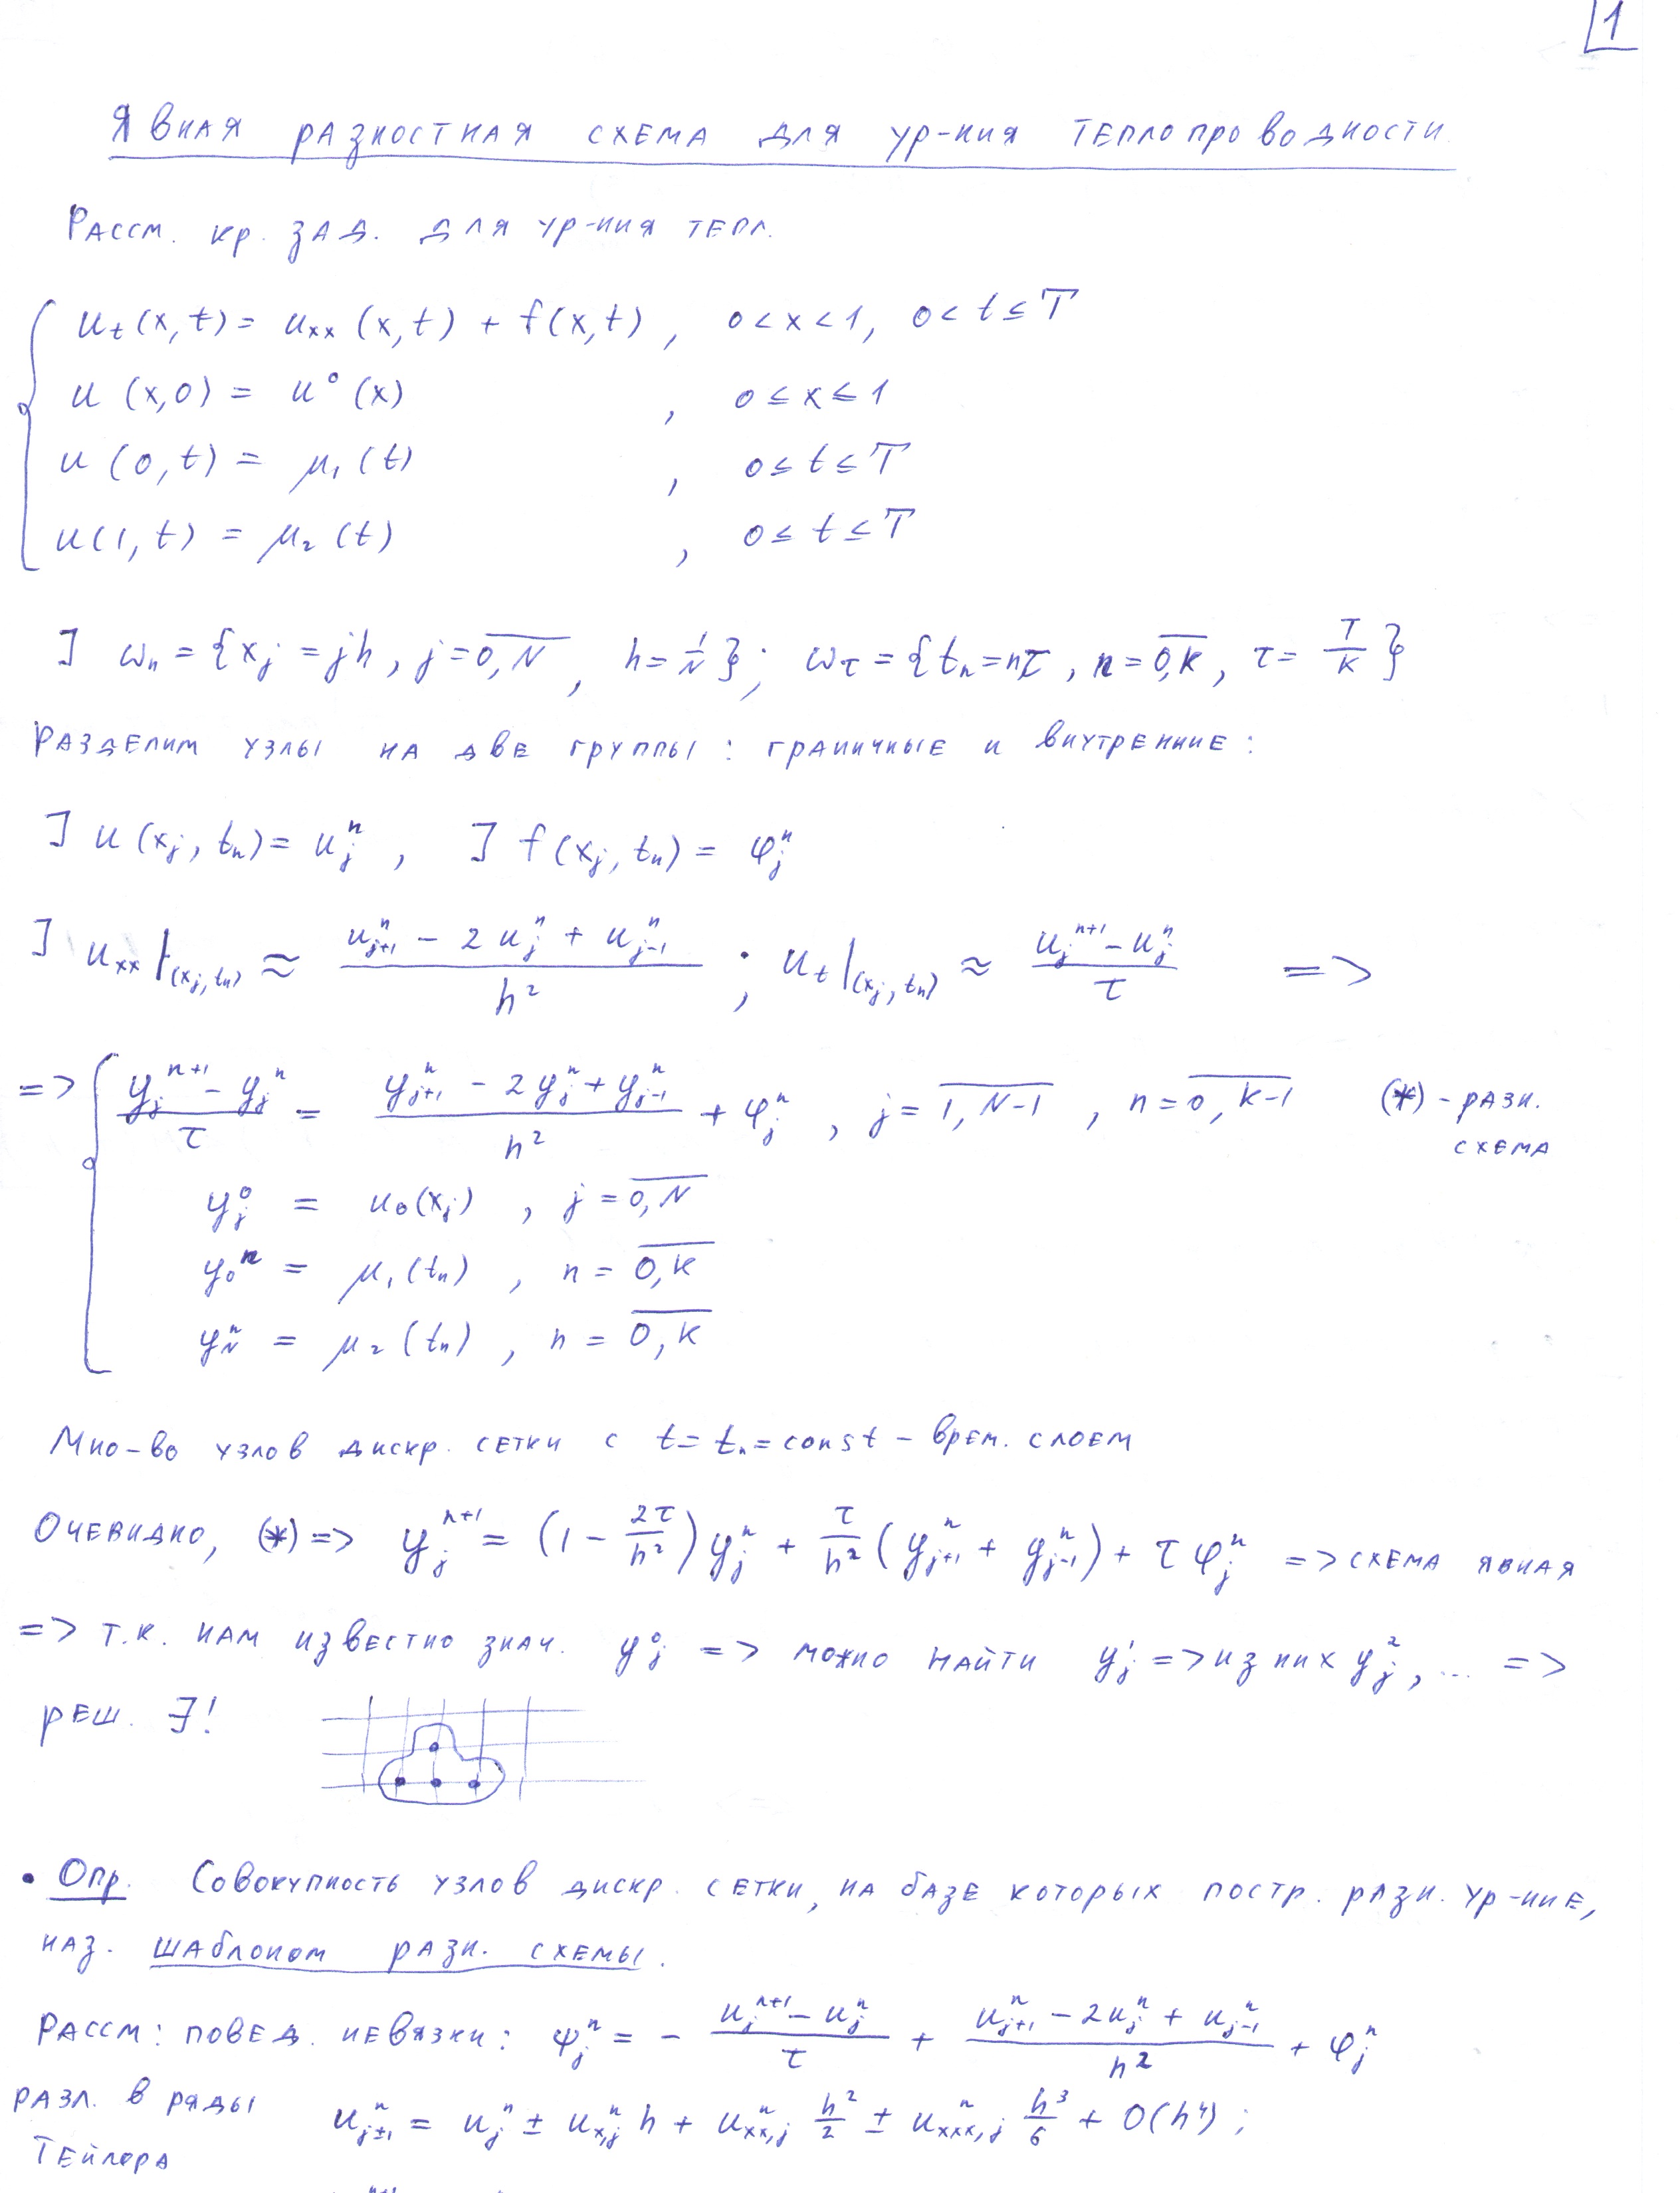 1
Явная разностная схема для ур-ния теплопроводности
Рассм. кр. зад. для ур-ния тепл.
u_t(x,t) = u_xx(x,t) + f(x,t), 0<x<1, 0<t≤T
u(x,0) = u⁰(x), 0≤x≤1
u(0,t) = μ₁(t), 0≤t≤T
u(1,t) = μ₂(t), 0≤t≤T
] ω_h = {x_j = jh, j=\overline{0,N}, h=1/N}; ω_τ = {t_n=nτ, n=\overline{0,K}, τ= T/K}
Разделим узлы на две группы: граничные и внутренние:
] u(x_j, t_n) = u_j^n, ] f(x_j, t_n) = φ_j^n
] u_xx|_(x_j,t_n) ≈ (u_{j+1}^n - 2u_j^n + u_{j-1}^n)/h²; u_t|_(x_j,t_n) ≈ (u_j^{n+1} - u_j^n)/τ =>
=> (y_j^{n+1} - y_j^n)/τ = (y_{j+1}^n - 2y_j^n + y_{j-1}^n)/h² + φ_j^n, j=\overline{1,N-1}, n=\overline{0,K-1} (*) - разн. схема
y_j^0 = u_0(x_j), j=\overline{0,N}
y_0^n = μ₁(t_n), n=\overline{0,K}
y_N^n = μ₂(t_n), n=\overline{0,K}
Мно-во узлов дискр. сетки с t=t_n=const - врем. слоем
Очевидно, (*) => y_j^{n+1} = (1 - 2τ/h²)y_j^n + τ/h²(y_{j+1}^n + y_{j-1}^n) + τφ_j^n => схема явная
=> т.к. нам известно знач. y_j^0 => можно найти y_j^1 => из них y_j^2, ... =>
реш. ∃!
• Опр. Совокупность узлов дискр. сетки, на базе которых постр. разн. ур-ние,
наз. шаблоном разн. схемы.
Рассм: повед. невязки: ψ_j^n = - (u_j^{n+1} - u_j^n)/τ + (u_{j+1}^n - 2u_j^n + u_{j-1}^n)/h² + φ_j^n
разл. в ряды
Тейлора
u_{j±1}^n = u_j^n ± u_{x,j}^n h + u_{xx,j}^n h²/2 ± u_{xxx,j}^n h³/6 + O(h⁴);